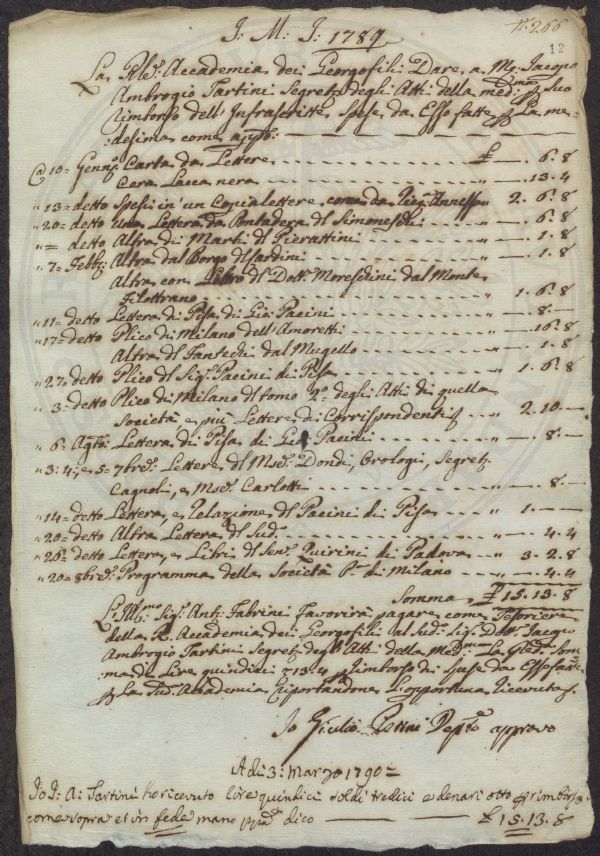 N. 266
12
J: M: J: 1789
La Rle. Accademia dei Georgofili Dare, a Mr. Jacopo
Ambrogio Tartini Segret. degli Atti della med.ma p Suo
Rimborso dell'Infrascritte Spese da Esso fatte p La me-
:desima come app.o
@ 10 = Genn.o Carta da Lettere £ —. 6. 8
Cera Lacca nera " —. 13. 4
" 13 = detto Spesi in un Copialettere come da Ric.a Annessa 2. 6. 8
" 20 = detto Una Lettera da Pontadera di Simoneschi " —. 6. 8
" = detto Altra di Marti di Pierattini " —. 1. 8
" 7 = Febb: Altra dal Borgo di Sardini " —. 1. 8
Altra con Libro di Dott. Moreschini dal Monte
Filottrano " 1. 6. 8
" 11 = detto Lettera di Pisa di Gio: Pacini " —. 8. —
" 17 = detto Plico di Milano dell'Amoretti " —. 16. 8
Altra di Fantechi dal Mugello " —. 1. 8
" 27 = detto Plico di Sig. Pacini di Pisa " 1. 6. 8
" 3 = detto Plico di Milano di tomo 2.o degli Atti di quella
Società e più Lettere di Corrispondenti " 2. 10. —
" 6 = Agto: Lettera di Pisa di Gio: Pacini " —. 8. —
" 3: 4:, e 5 = 7bre. Lettere di Mse. Dondi, Orologi, Segret.
Cagnoli, e Mse. Carlotti —. 8. —
" 14 = detto Lettera, e Relazione di Pacini di Pisa " 1. —
" 20 = detto Altra Lettera di Sud. " —. 4. 4
" 26 = detto Lettera, e Libri di Sen. Quirini di Padova " 3. 2. 8
" 20 = 8bre. Programma della Società P. di Milano " —. 4. 4
Somma £ 15. 13. 8
L'Ill.mo Sig. Ant: Fabrini favorirà pagare come Tesoriere
della R. Accademia dei Georgofili al Sud. Sig. Dott. Jacopo
Ambrogio Tartini Segret. degli Atti della Med.ma La Sud. Som:
ma di Lire quindici 13. 4 p Rimborso di spese da Esso fatte
p La Sud. Accademia Riportandone L'opportuna Ricevuta
Io Giulio Dep.to approvo
A di 3: Marzo 1790 =
Io J: A: Tartini ho ricevuto lire quindici soldi tredici e denari otto p rimborso
come sopra et in fede mano pp.a dico £ 15. 13. 8